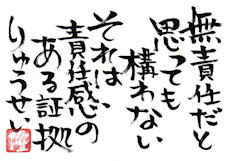 無責任だと
思っても
構わない
それは
責任感の
ある証拠
りゅうせい